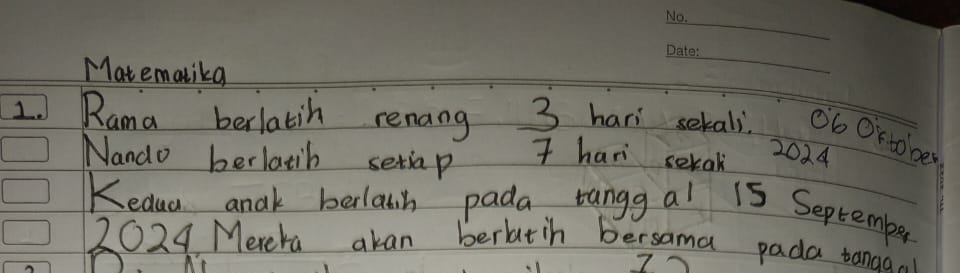 No.
Date:
Matematika
1. Rama berlatih renang 3 hari sekali. 06 Oktober
Nando berlatih setiap 7 hari sekali 2024
Kedua anak berlatih pada tanggal 15 September
2024. Mereka akan berlatih bersama pada tanggal